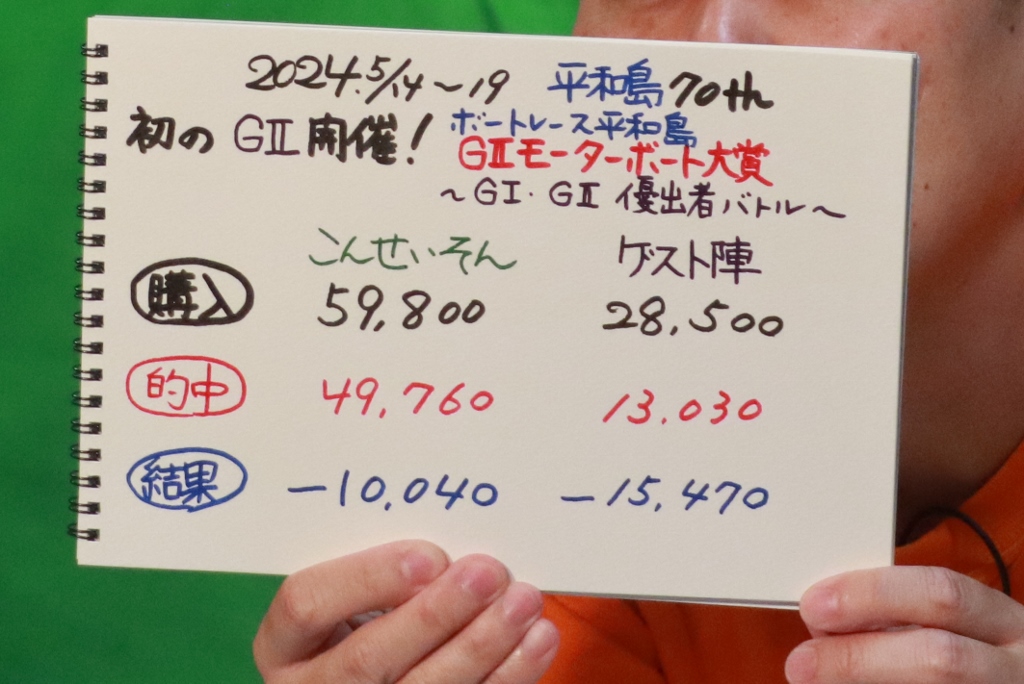 2024.5/14〜19 平和島70th
初のGⅡ開催! ボートレース平和島
GⅡモーターボート大賞
〜GⅠ・GⅡ 優出者バトル〜
こんせいそん ゲスト陣
購入 59,800 28,500
的中 49,760 13,030
結果 −10,040 −15,470